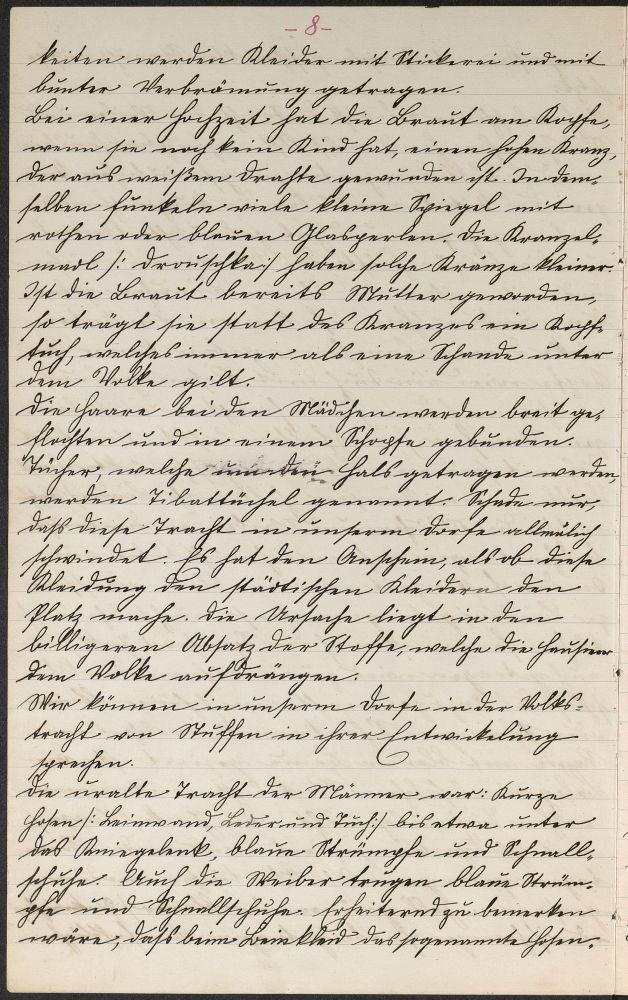 - 8 -
keiten werden Kleider mit Stickerei und mit
bunter Verbrämung getragen.
Bei einer Hochzeit hat die Braut am Kopfe,
wenn sie noch kein Kind hat, einen hohen Kranz,
der aus weißem Drahte gewunden ist. In dem-
selben funkeln viele kleine Spiegel mit
rothen oder blauen Glasperlen. Die Kranzel-
madl /: Drouschka :/ haben solche Kränze kleiner.
Ist die Braut bereits Mutter geworden,
so trägt sie statt des Kranzes ein Kopf-
tuch, welches immer als eine Schande unter
dem Volke gilt.
Die Haare bei den Mädchen werden breit ge-
flochten und in einem Schopfe gebunden.
Tücher, welche um den Hals getragen werden,
werden Tibattüchel genannt. Schade nur,
daß diese Tracht in unserm Dorfe allmälich
schwindet. Es hat den Anschein, als ob diese
Kleidung den städtischen Kleidern den
Platz mache. Die Ursache liegt in den
billigeren Absatz der Stoffe, welche die Hausierer
dem Volke aufdrängen.
Wir können in unserm Dorfe in der Volks-
tracht von Stuffen in ihrer Entwickelung
sprechen.
Die uralte Tracht der Männer war: Kurze
Hosen /: Leinwand, Leder und Tuch :/ bis etwa unter
das Kniegelenk, blaue Strümpfe und Schnall-
schuhe. Auch die Weiber trugen blaue Strüm-
pfe und Schnallschuhe. Erheiternd zu bemerken
wäre, daß beim Beinkleid das sogenannte Hosen-